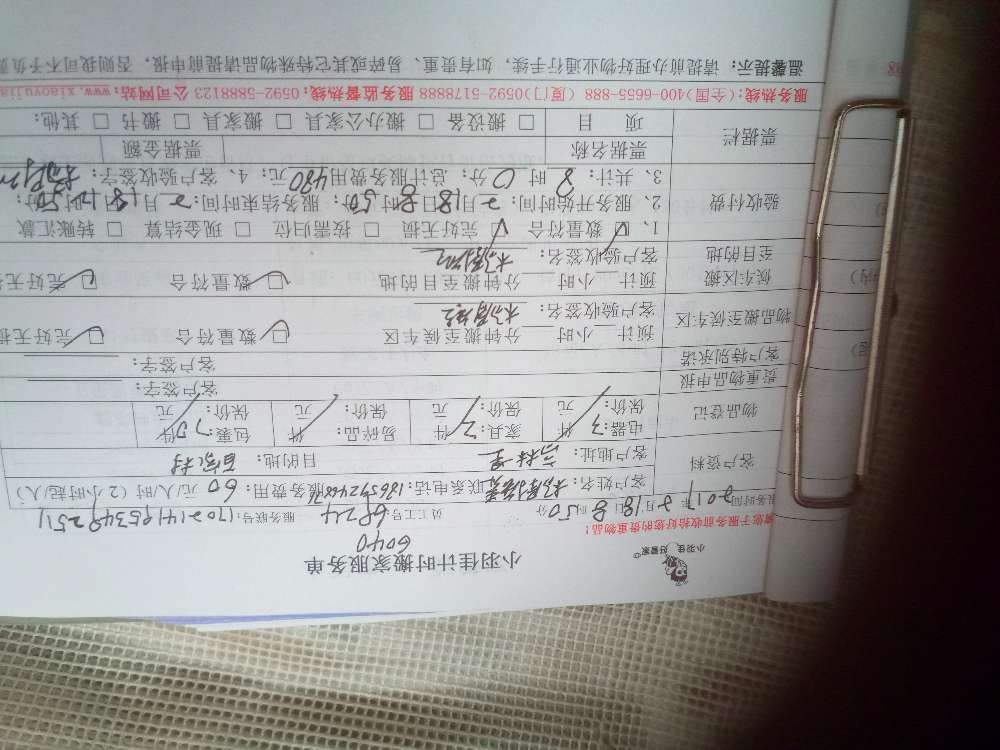 小羽佳 好管家
小羽佳计时搬家服务单
6040
请您于服务前收拾您的贵重物品!
服务时间: 2017年2月18日8时50分 员工工号: 6824 服务联号:
客户资料 客户姓名: 联系电话: 服务费用: 60 元/人/时 (2小时起/人)
客户地址: 高林一里 目的地:
物品登记 电器: 3件 家具: 2件 易碎品: 件 包装: 件
保价: 元 保价: 元 保价: 元 保价: 元
贵重物品申报 客户签字:
客户特别承诺 客户签字:
物品搬至候车区 预计 小时 分钟搬至候车区 数量符合 完好无损
客户验收签名:
候车区搬至目的地 预计 小时 分钟搬至目的地 数量符合 完好无损
客户验收签名:
验收付费 1、 数量符合 完好无损 按需归位 现金结算 转账汇款
2、服务开始时间: 2月18日8时50分; 服务结束时间: 2月18日12时50分;
3、共计: 8时0分; 总计服务费用480元; 4、客户验收签字:
票据栏 票据名称 票据金额
项目 搬设备 搬办公家具 搬家具 搬书 其他:
服务热线:(全国)400-6655-888 (厦门)0592-5178888 服务监督热线:0592-5888123 公司网站:www.xiaoyujia
温馨提示: 请提前办理好物业通行手续, 如有贵重、易碎或其它特殊物品请提前申报, 否则我司不予负责